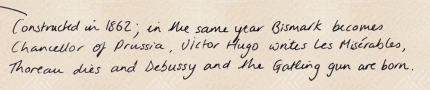 Constructed in 1862; in the same year Bismark becomes
Chancellor of Prussia, Victor Hugo writes Les Misérables,
Thoreau dies and Debussy and the Gatling gun are born.